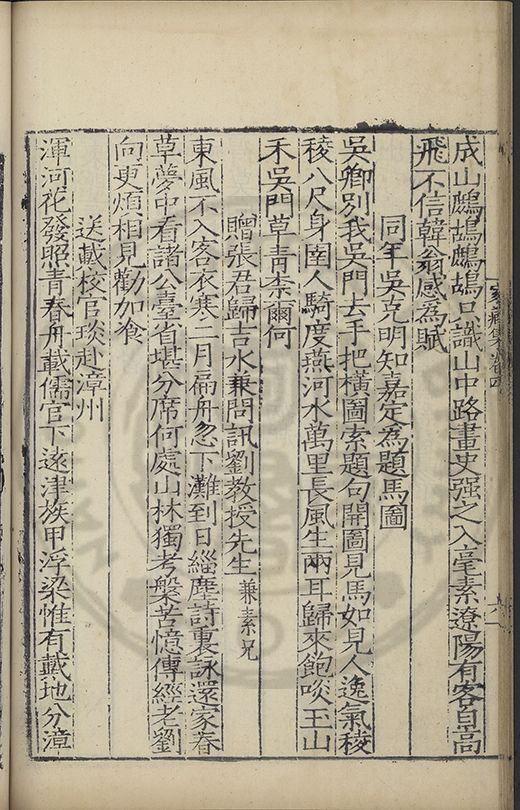 成山鷓鴣鷓鴣口識山中路畫史强之入毫素遼陽有客自高
飛不信韓翁感為賦
同年吳克明知嘉定為題馬圖
吳卿別我吳門去手把橫圖索題句開圖見馬如見人逸氣稜
稜八尺身圉人騎度燕河水萬里長風生兩耳歸來飽啖玉山
禾吳門草青柰爾何
贈張君歸吉水兼問訊劉教授先生兼素兄
東風不入客衣寒二月扁舟忽下灘到日緇塵詩裏詠還家春
草夢中看諸公臺省堪分席何處山林獨考槃苦憶傳經老劉
向更煩相見勸加飡
送戴校官琰赴漳州
渾河花發照青春舟載儒官下遠津族甲浮梁惟有戴地分漳